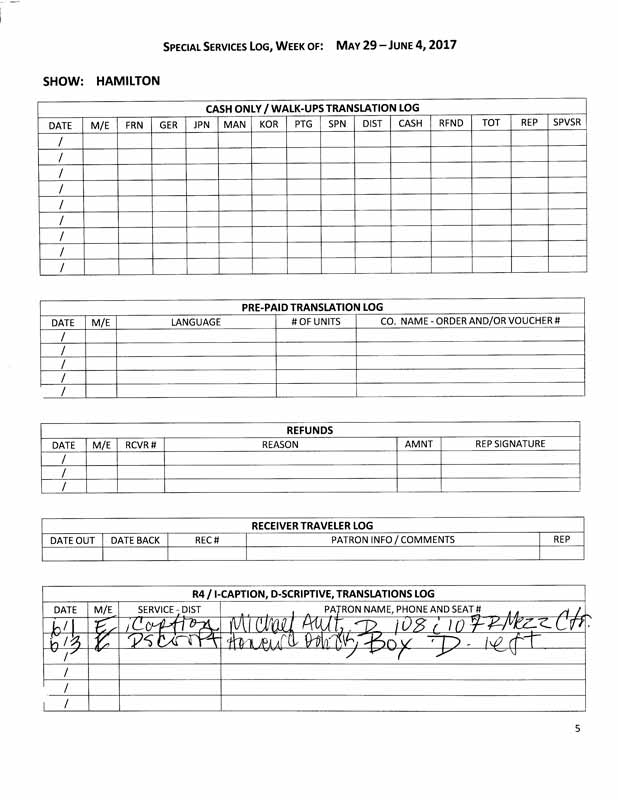 SPECIAL SERVICES LOG, WEEK OF: MAY 29 – JUNE 4, 2017
SHOW: HAMILTON
CASH ONLY / WALK-UPS TRANSLATION LOG
DATE M/E FRN GER JPN MAN KOR PTG SPN DIST CASH RFND TOT REP SPVSR
/
/
/
/
/
/
/
/
/
PRE-PAID TRANSLATION LOG
DATE M/E LANGUAGE # OF UNITS CO. NAME - ORDER AND/OR VOUCHER #
/
/
/
/
/
REFUNDS
DATE M/E RCVR # REASON AMNT REP SIGNATURE
/
/
/
RECEIVER TRAVELER LOG
DATE OUT DATE BACK REC # PATRON INFO / COMMENTS REP
R4 / I-CAPTION, D-SCRIPTIVE, TRANSLATIONS LOG
DATE M/E SERVICE - DIST PATRON NAME, PHONE AND SEAT #
6/1 E iCaption Michael Ault, D 108 Mezz Ctr.
6/3 E DScript Box D- left
/
/
/
/
5